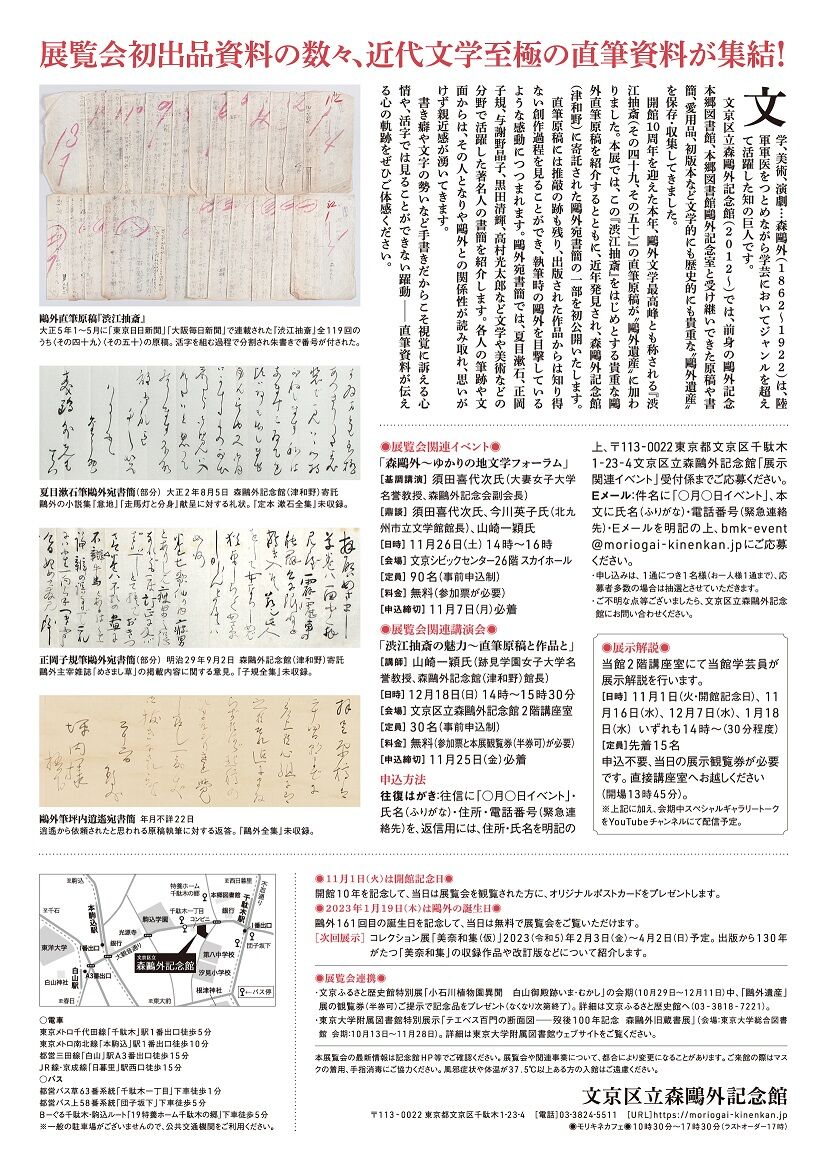 展覧会初出品資料の数々、近代文学至極の直筆資料が集結!
文学、美術、演劇…森鷗外(1862〜1922)は、陸
軍軍医をつとめながら学芸においてジャンルを超え
て活躍した知の巨人です。
文京区立森鷗外記念館(2012〜)では、前身の鷗外記念
本郷図書館、本郷図書館鷗外記念室と受け継いできた原稿や書
簡、愛用品、初版本など文学的にも歴史的にも貴重な〝鷗外遺産〟
を保存・収集してきました。
開館10周年を迎えた本年、鷗外文学最高峰とも称される『渋
江抽斎(その四十九、その五十)』の直筆原稿が〝鷗外遺産〟に加わ
りました。本展では、この『渋江抽斎』をはじめとする貴重な鷗
外直筆原稿を紹介するとともに、近年発見され、森鷗外記念館
(津和野)に寄託された鷗外宛書簡の一部を初公開いたします。
直筆原稿には推敲の跡も残り、出版された作品からは知り得
ない創作過程を見ることができ、執筆時の鷗外を目撃している
ような感動につつまれます。鷗外宛書簡では、夏目漱石、正岡
子規、与謝野晶子、黒田清輝、高村光太郎など文学や美術などの
分野で活躍した著名人の書簡を紹介します。各人の筆跡や文
面からは、その人となりや鷗外との関係性が読み取れ、思いが
けず親近感が湧いてきます。
書き癖や文字の勢いなど手書きだからこそ視覚に訴える心
情や、活字では見ることができない躍動——直筆資料が伝え
る心の軌跡をぜひご体感ください。
鷗外直筆原稿『渋江抽斎』
大正5年1〜5月に「東京日日新聞」「大阪毎日新聞」で連載された『渋江抽斎』全119回の
うち〈その四十九〉〈その五十〉の原稿。活字を組む過程で分割され朱書きで番号が付された。
夏目漱石筆鷗外宛書簡(部分) 大正2年8月5日 森鷗外記念館(津和野)寄託
鷗外の小説集『意地』『走馬灯と分身』献呈に対する礼状。『定本 漱石全集』未収録。
正岡子規筆鷗外宛書簡(部分) 明治29年9月2日 森鷗外記念館(津和野)寄託
鷗外主宰雑誌「めさまし草」の掲載内容に関する意見。『子規全集』未収録。
鷗外筆坪内逍遙宛書簡 年月不詳22日
逍遙から依頼されたと思われる原稿執筆に対する返答。『鷗外全集』未収録。
◉展覧会関連イベント◉
「森鷗外〜ゆかりの地文学フォーラム」
[基調講演] 須田喜代次氏(大妻女子大学
名誉教授、森鷗外記念会副会長)
[鼎談] 須田喜代次氏、今川英子氏(北九
州市立文学館館長)、山崎一穎氏
[日時] 11月26日(土) 14時〜16時
[会場] 文京シビックセンター26階 スカイホール
[定員] 90名(事前申込制)
[料金] 無料(参加票が必要)
[申込締切] 11月7日(月)必着
◉展覧会関連講演会◉
「渋江抽斎の魅力〜直筆原稿と作品と」
[講師] 山崎一穎氏(跡見学園女子大学名
誉教授、森鷗外記念館(津和野)館長)
[日時] 12月18日(日) 14時〜15時30分
[会場] 文京区立森鷗外記念館2階講座室
[定員] 30名(事前申込制)
[料金] 無料(参加票と本展観覧券(半券可)が必要)
[申込締切] 11月25日(金)必着
申込方法
往復はがき:往信に「〇月〇日イベント」・
氏名(ふりがな)・住所・電話番号(緊急連
絡先)を、返信用には、住所・氏名を明記の
上、〒113-0022東京都文京区千駄木
1-23-4文京区立森鷗外記念館「展示
関連イベント」受付係までご応募ください。
Eメール:件名に「〇月〇日イベント」、本
文に氏名(ふりがな)・電話番号(緊急連絡
先)・Eメールを明記の上、bmk-event
@moriogai-kinenkan.jpにご応募
ください。
・申し込みは、1通につき1名様(お一人様1通まで)、応
募者多数の場合は抽選とさせていただきます。
・ご不明な点等ございましたら、文京区立森鷗外記念
館にお問い合わせください。
◉展示解説◉
当館2階講座室にて当館学芸員が
展示解説を行います。
[日時] 11月1日(火・開館記念日)、11
月16日(水)、12月7日(水)、1月18
日(水) いずれも14時〜(30分程度)
[定員]先着15名
申込不要、当日の展示観覧券が必要
です。直接講座室へお越しください
(開場13時45分)。
※上記に加え、会期中スペシャルギャラリートーク
をYouTubeチャンネルにて配信予定。
至駒込
至西日暮里
不忍通り
特養ホーム
千駄木の郷
本郷図書館
至千石
本駒込駅
駒込学園
千駄木一丁目
コンビニ
銀行
千駄木駅
1番出口
光源寺
東洋大学
1番出口
銀行
大観音通り
団子坂下
文京区立
森鷗外記念館
第八中学校
汐見小学校
白山駅
A3番出口
白山神社
根津神社
バス停
至春日
至東大前
○電車
東京メトロ千代田線「千駄木」駅1番出口徒歩5分
東京メトロ南北線「本駒込」駅1番出口徒歩10分
都営三田線「白山」駅A3番出口徒歩15分
JR線・京成線「日暮里」駅西口徒歩15分
○バス
都営バス草63番系統「千駄木一丁目」下車徒歩1分
都営バス上58番系統「団子坂下」下車徒歩5分
B-ぐる千駄木・駒込ルート「19特養ホーム千駄木の郷」下車徒歩5分
※一般の駐車場がございませんので、公共交通機関をご利用ください。
◉11月1日(火)は開館記念日◉
開館10年を記念して、当日は展覧会を観覧された方に、オリジナルポストカードをプレゼントします。
◉2023年1月19日(木)は鷗外の誕生日◉
鷗外161回目の誕生日を記念して、当日は無料で展覧会をご覧いただけます。
[次回展示] コレクション展「美奈和集(仮)」2023(令和5)年2月3日(金)〜4月2日(日)予定。出版から130年
がたつ「美奈和集」の収録作品や改訂版などについて紹介します。
◉展覧会連携◉
・文京ふるさと歴史館特別展「小石川植物園異聞 白山御殿跡いま・むかし」の会期(10月29日〜12月11日)中、「鷗外遺産」
展の観覧券(半券可)ご提示で記念品をプレゼント(なくなり次第終了)。詳細は文京ふるさと歴史館へ(03-3818-7221)。
・東京大学附属図書館特別展示「テエベス百門の断面図——歿後100年記念 森鷗外旧蔵書展」(会場:東京大学総合図書
館 会期:10月13日〜11月28日)。詳細は東京大学附属図書館ウェブサイトをご覧ください。
本展覧会の最新情報は記念館HP等でご確認ください。展覧会や関連事業について、都合により変更になることがあります。ご来館の際はマス
クの着用、手指消毒にご協力ください。風邪症状や体温が37.5℃以上ある方の入館はご遠慮ください。
文京区立森鷗外記念館
〒113-0022 東京都文京区千駄木1-23-4 [電話]03-3824-5511 [URL]https://moriogai-kinenkan.jp
◉モリキネカフェ◉10時30分〜17時30分(ラストオーダー17時)